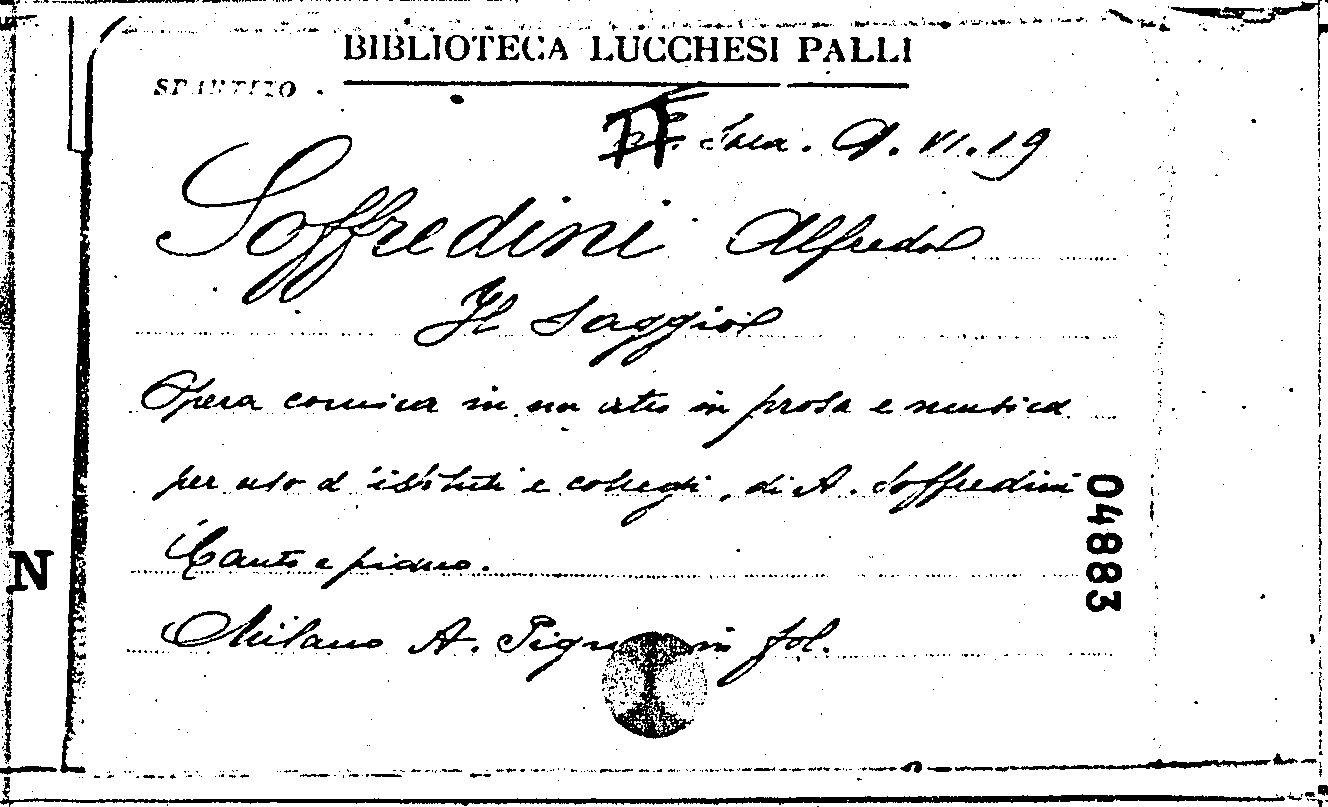 BIBLIOTECA LUCCHESI PALLI
SPARTITO
Sala. A. VI. 19
Soffredini Alfredo
Il Saggio
Opera comica in un atto in prosa e musica
per uso d'istituti e collegi, di A. Soffredini
Canto e piano.
Milano A. in fol.
04883
N